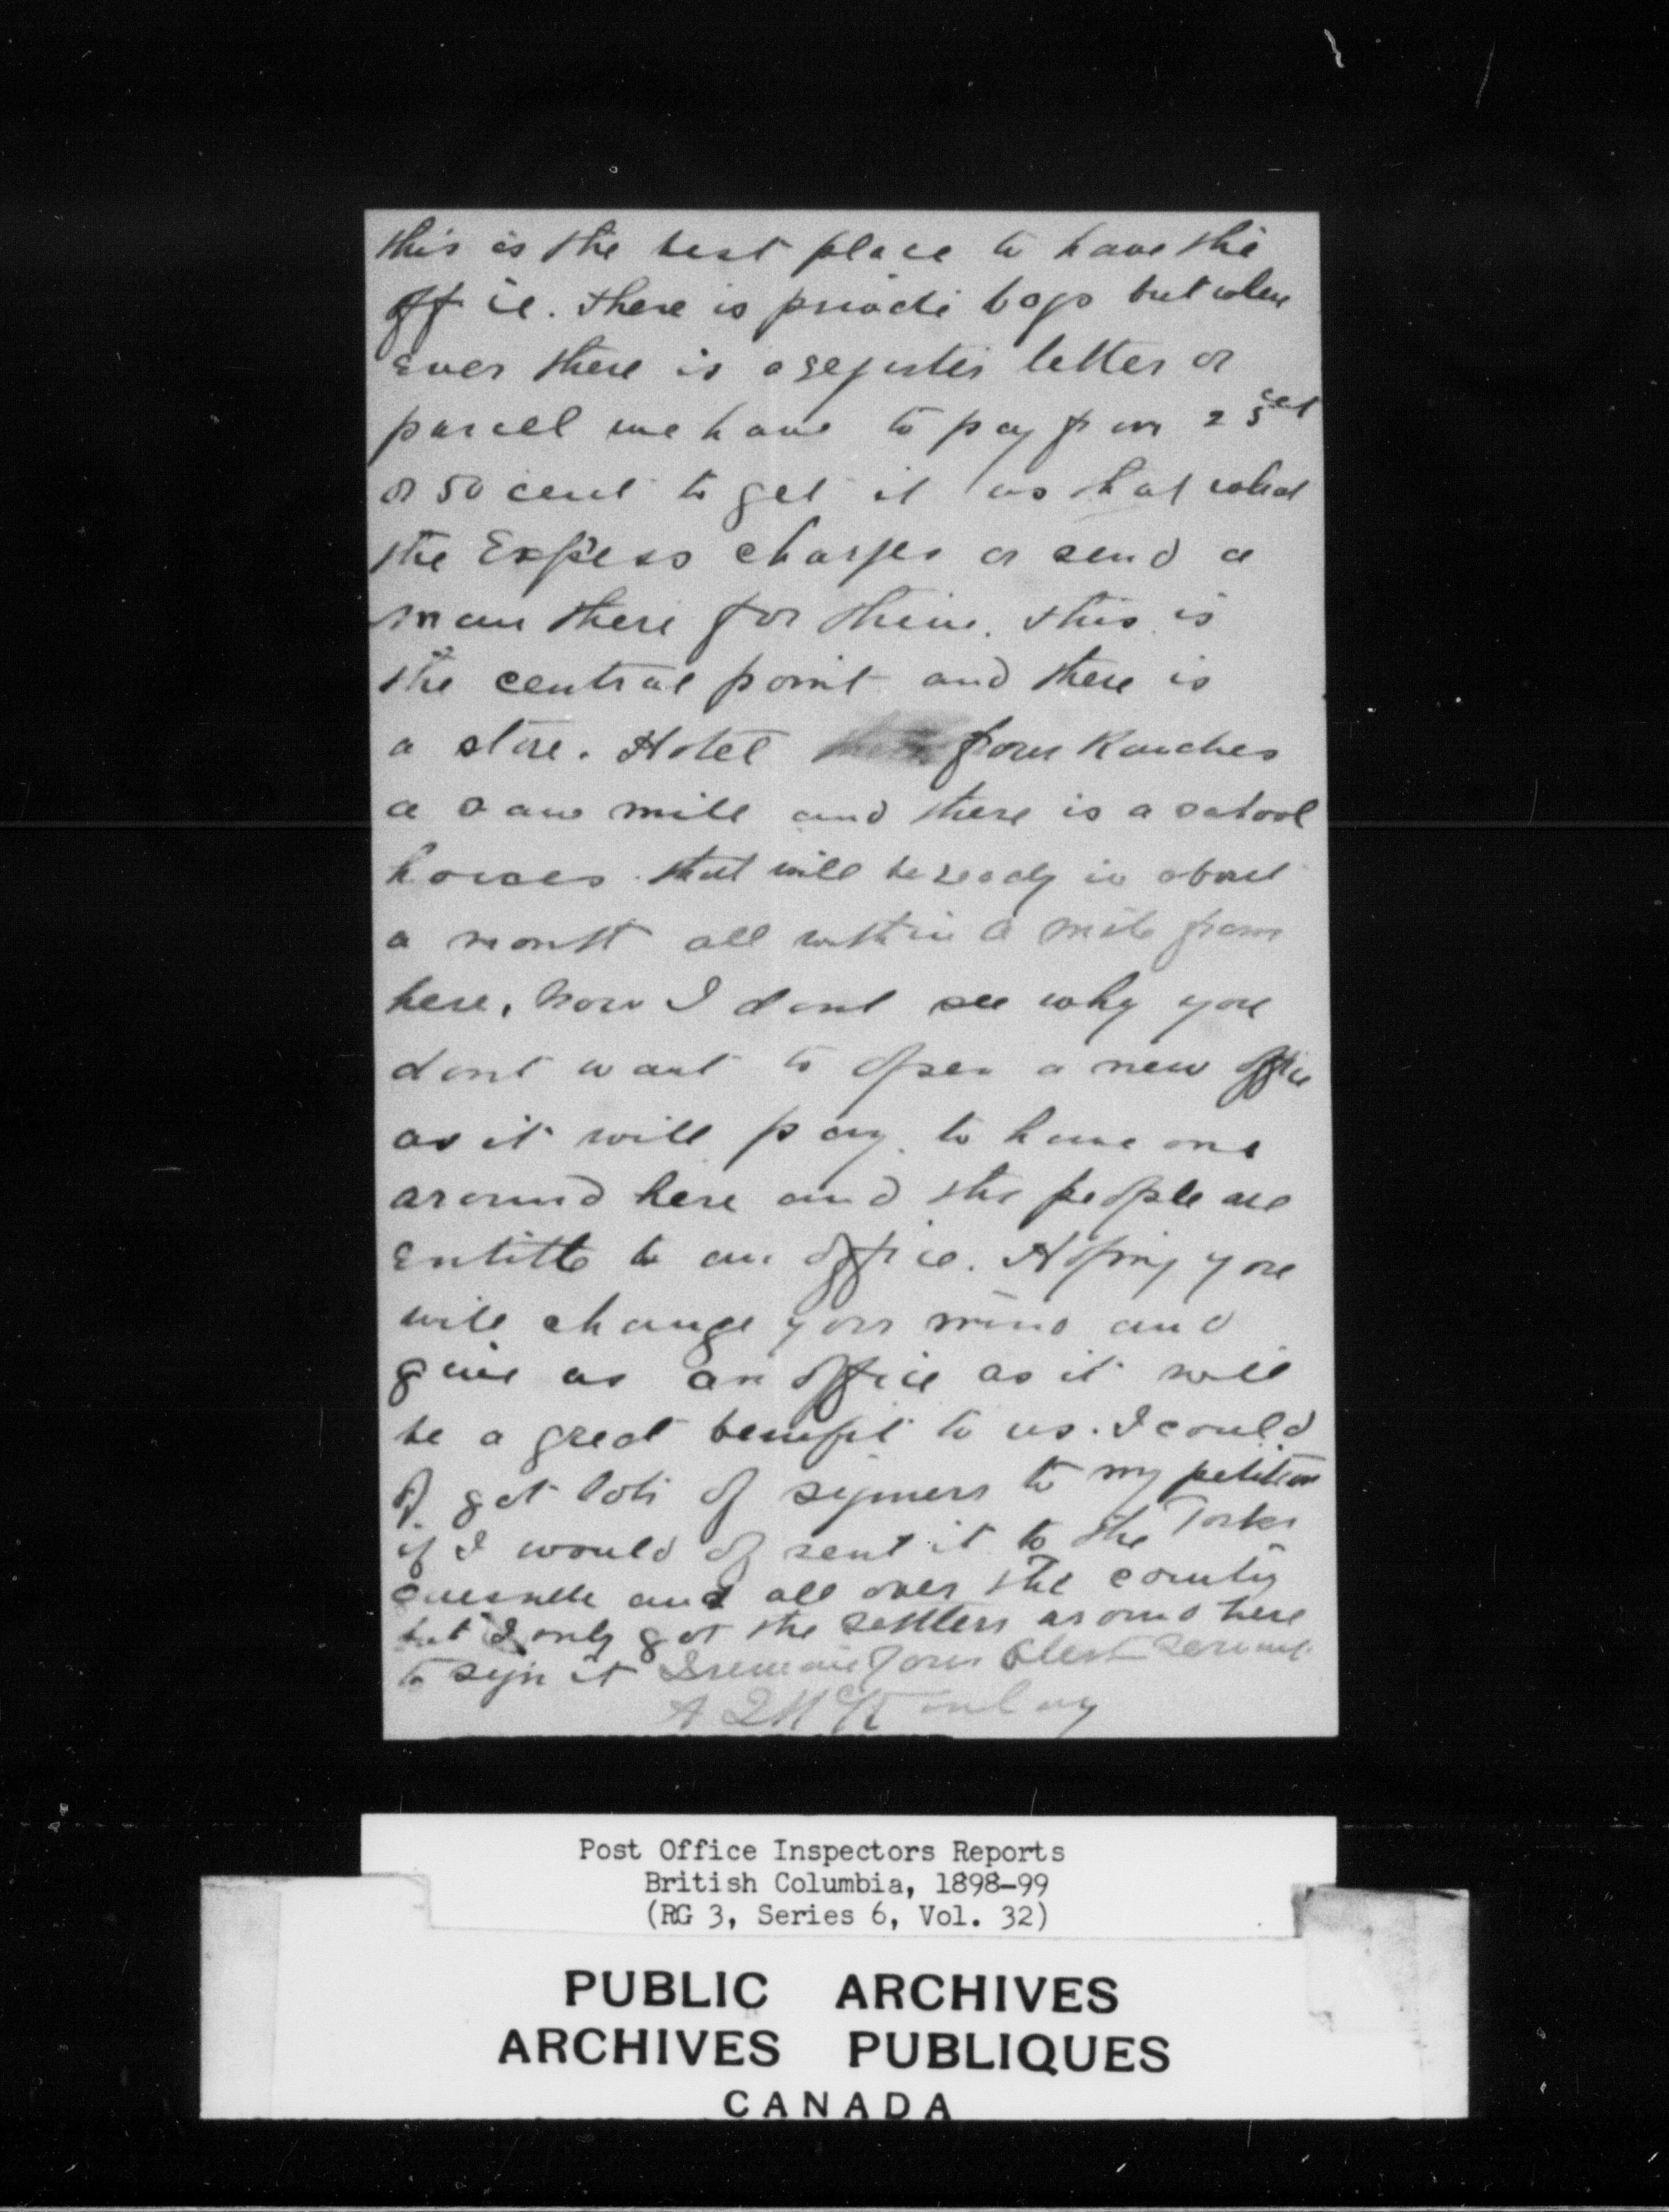 this is the best place to have the
office. there is private bags but when
ever there is a regester letter or
parcel we have to pay from 25 cet
or 50 cent to get it as that what
the Express charges or send a
man there for them. this is
the central point and there is
a store. Hotel four Ranches
a saw mill and there is a school
houses that will be ready in about
a month all within a mile from
here, now I dont see why you
dont want to open a new office
as it will pay to have one
around here and the people are
entitle to an office. Hoping you
will change your mind and
give us an office as it will
be a great benefit to us. I could
of got lots of signers to my petition
if I would of sent it to the Forks
Quesnelle and all over the country
but I only got the settlers around here
to sign it I remain Your Obest servant
A D McKinlay
Post Office Inspectors Reports
British Columbia, 1898-99
(RG 3, Series 6, Vol. 32)
PUBLIC ARCHIVES
ARCHIVES PUBLIQUES
CANADA